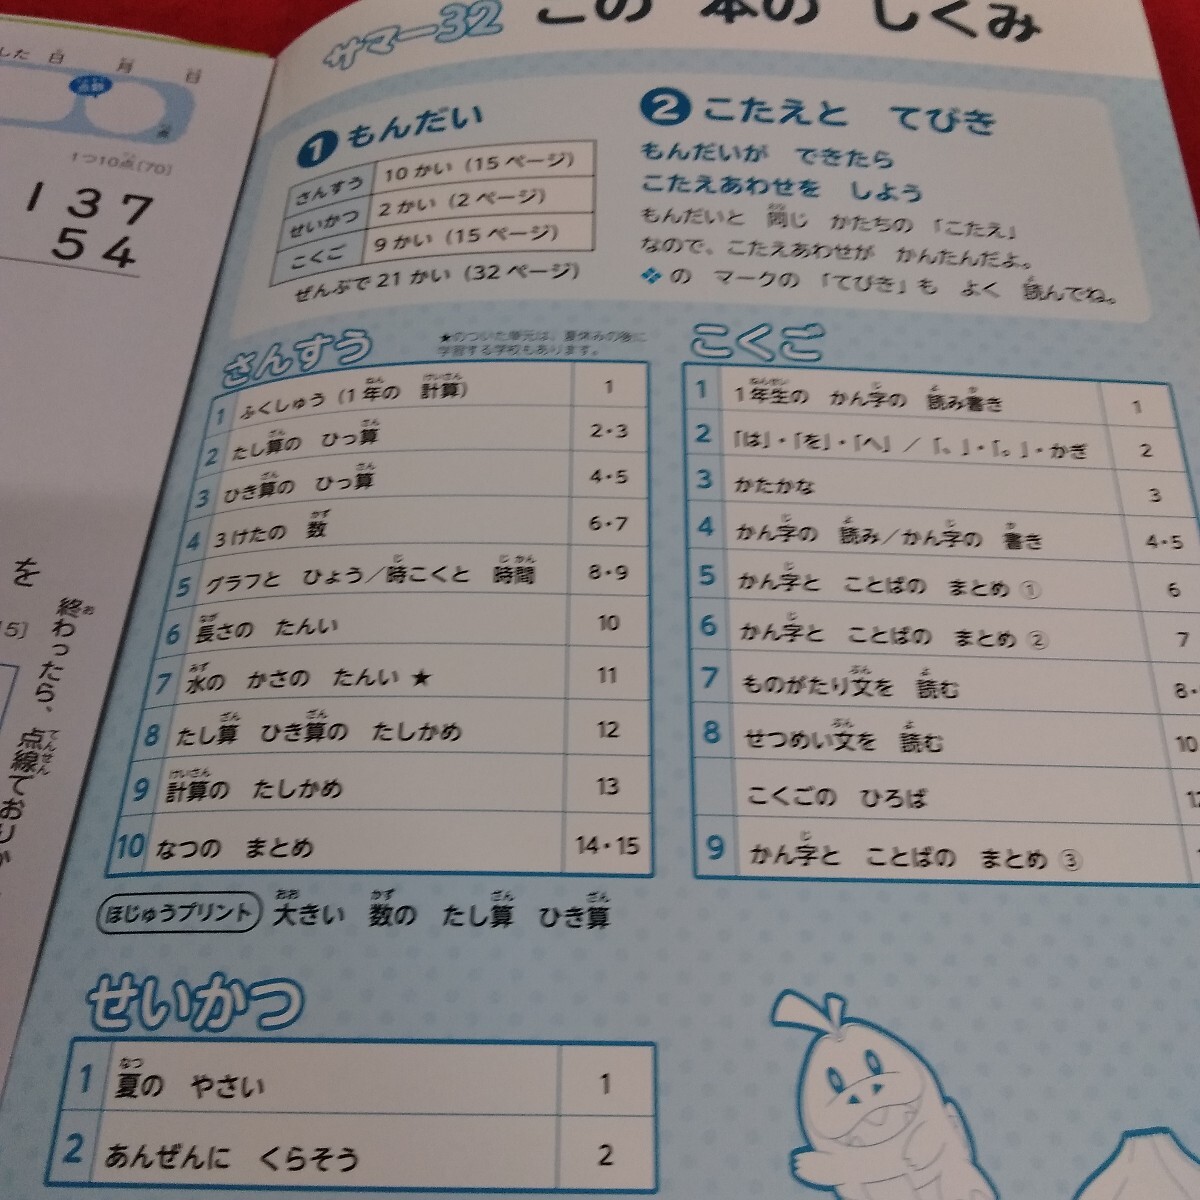 サマー32 この 本の しくみ
1 もんだい
さんすう 10かい（15ページ）
せいかつ 2かい（2ページ）
こくご 9かい（15ページ）
ぜんぶで21かい（32ページ）
2 こたえと てびき
もんだいが できたら
こたえあわせを しよう
もんだいと 同じ かたちの 「こたえ」
なので、こたえあわせが かんたんだよ。
❖の マークの 「てびき」も よく 読んでね。
さんすう
★のついた単元は、夏休みの後に
学習する学校もあります。
1 ふくしゅう（1年の 計算） 1
2 たし算の ひっ算 2・3
3 ひき算の ひっ算 4・5
4 3けたの 数 6・7
5 グラフと ひょう／時こくと 時間 8・9
6 長さの たんい 10
7 水の かさの たんい ★ 11
8 たし算 ひき算の たしかめ 12
9 計算の たしかめ 13
10 なつの まとめ 14・15
ほじゅうプリント 大きい 数の たし算 ひき算
こくご
1 1年生の かん字の 読み書き 1
2 「は」・「を」・「へ」／「、」・「。」・かぎ 2
3 かたかな 3
4 かん字の 読み／かん字の 書き 4・5
5 かん字と ことばの まとめ ① 6
6 かん字と ことばの まとめ ② 7
7 ものがたり文を 読む 8・
8 せつめい文を 読む 10
こくごの ひろば 12
9 かん字と ことばの まとめ ③
せいかつ
1 夏の やさい 1
2 あんぜんに くらそう 2
した 日 月 日
点
1つ10点〔70〕
137
54
を
終わったら、点線でおりか
15〕